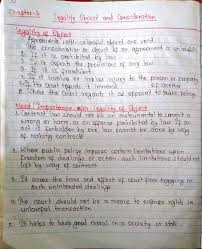 Chapter-
Legality Object and Consideration
Legality of Object
Agreements with unlawful object are void.
The consideration or object of an agreement is unlawful
1. If it is prohibited by law
2. If it defeats the provisions of any law
3. If it is fraudulent
4. If it involve an injury to the person or property
5. If the court regards it as opposed to public policy.
Need/Importance of legality of Object
1. Contract law should not be an instrument to commit a
wrong or harm or an offense prohibited by law. If an
act is forbidden by one law cannot be done by way
of making contract
2. Where public policy imposes certain limitations upon
freedom of dealings or action such limitation should not
by ways of contract.
3. It saves the time and effort of court from engaging in
such unintended dealings
4. The court should not be a means to enforce rights in
unlawful transaction.
5. It helps to keep good moral in a society or state.